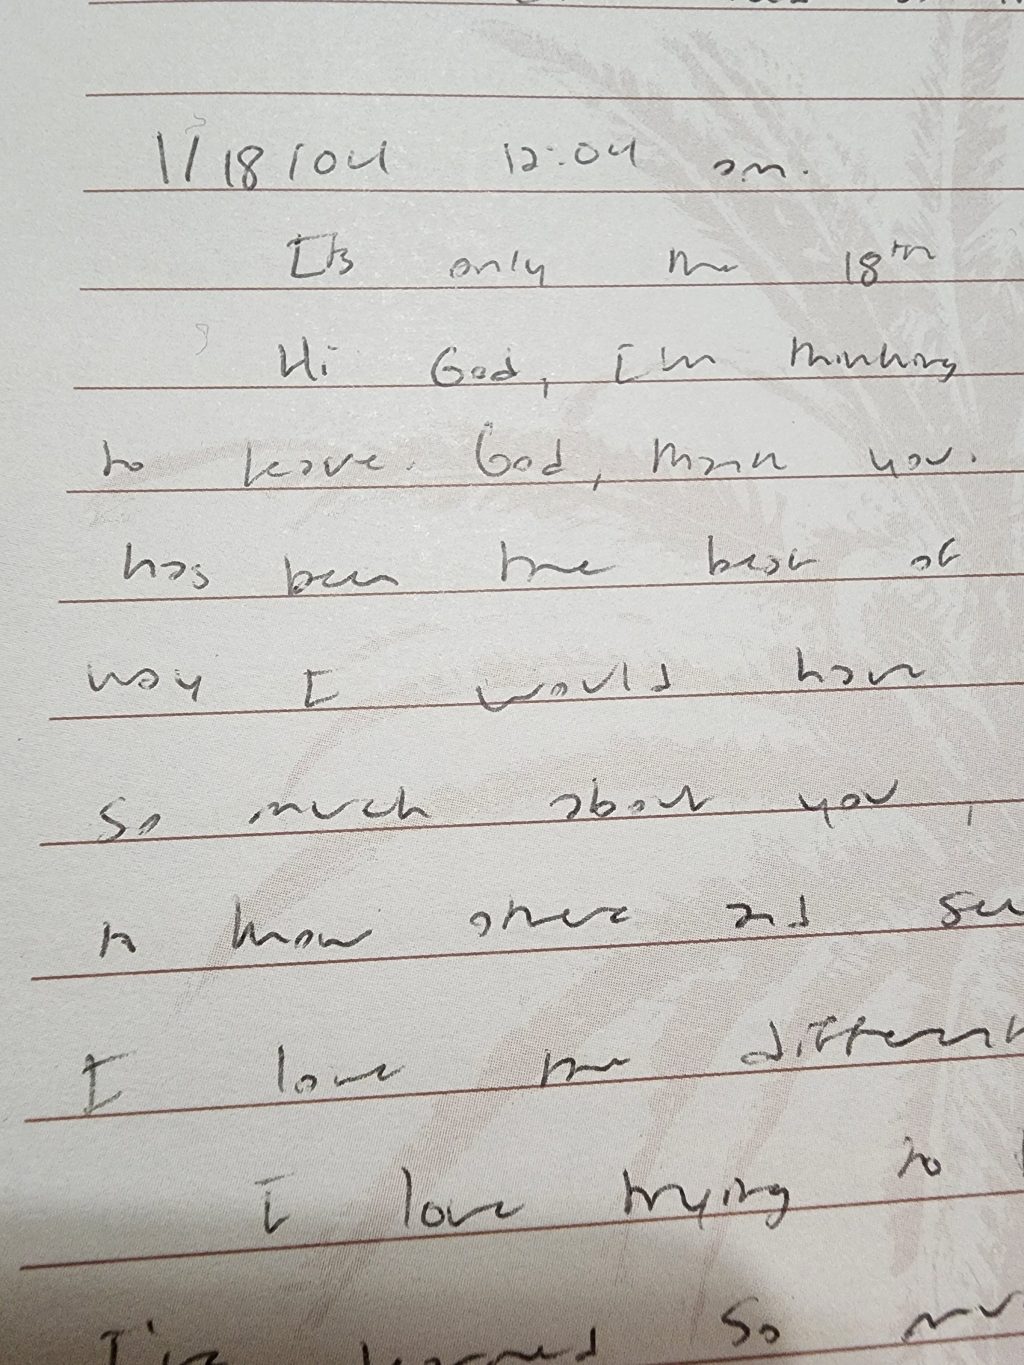 1/18/04 12:04 am.
Its only the 18th
Hi God, I'm thinking
to leave. God, thank you.
has been the best of
way I would have
so much about you,
to know there and see
I love the different
I love trying to
I've learned so mu